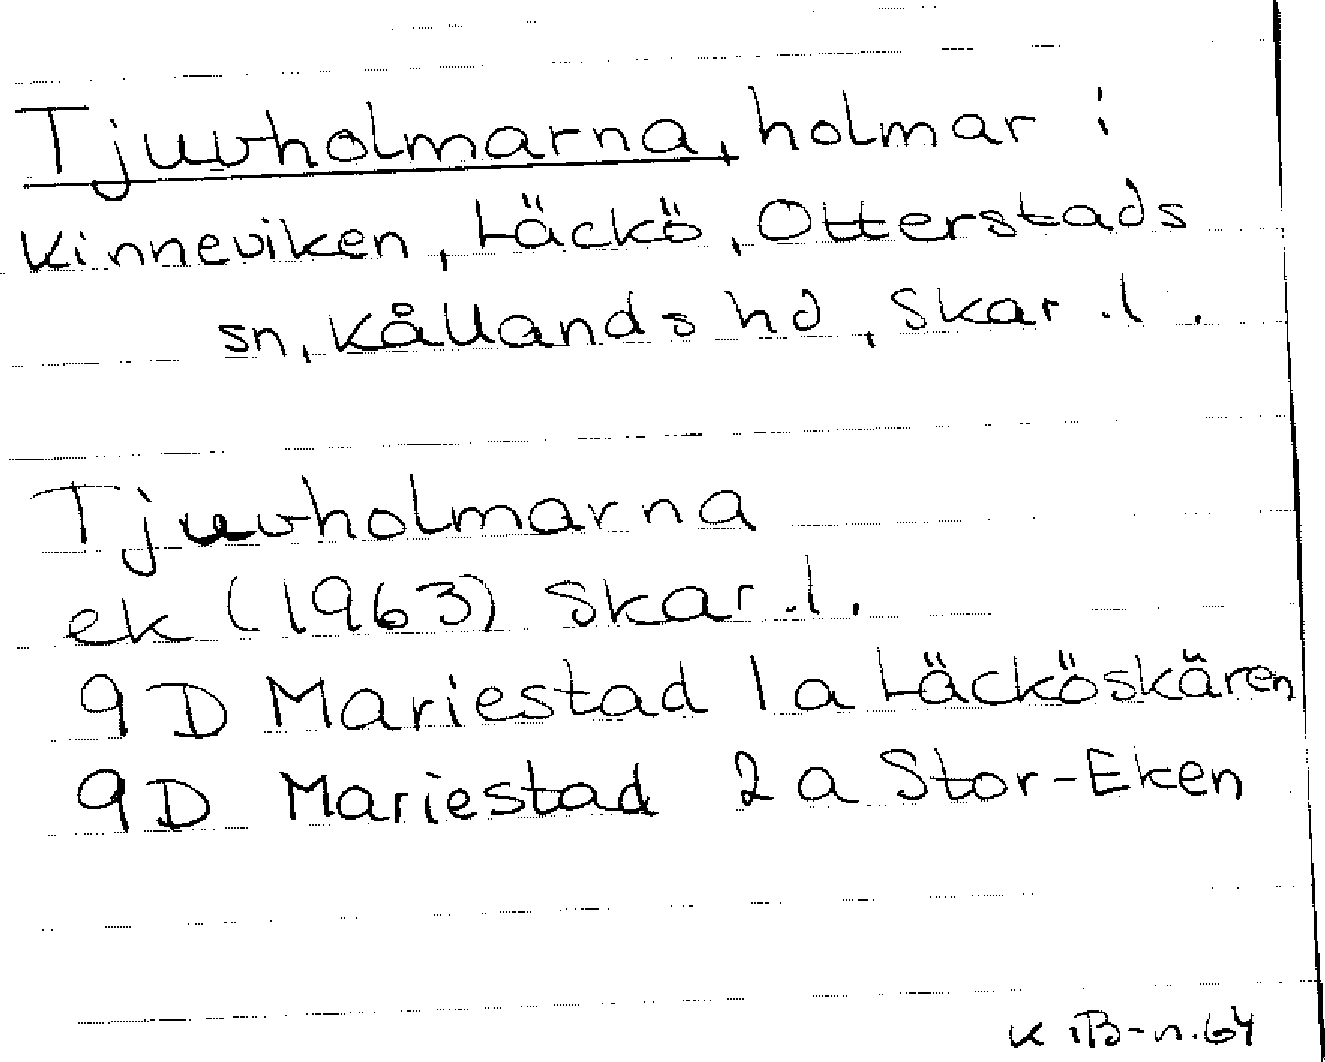 Tjuvholmarna, holmar i
Kinneviken, Läckö, Otterstads
sn, Kållands hd, Skar.l.
Tjuvholmarna
ek (1963) Skar.l.
9D Mariestad 1a Läcköskären
9D Mariestad 2a Stor-Eken